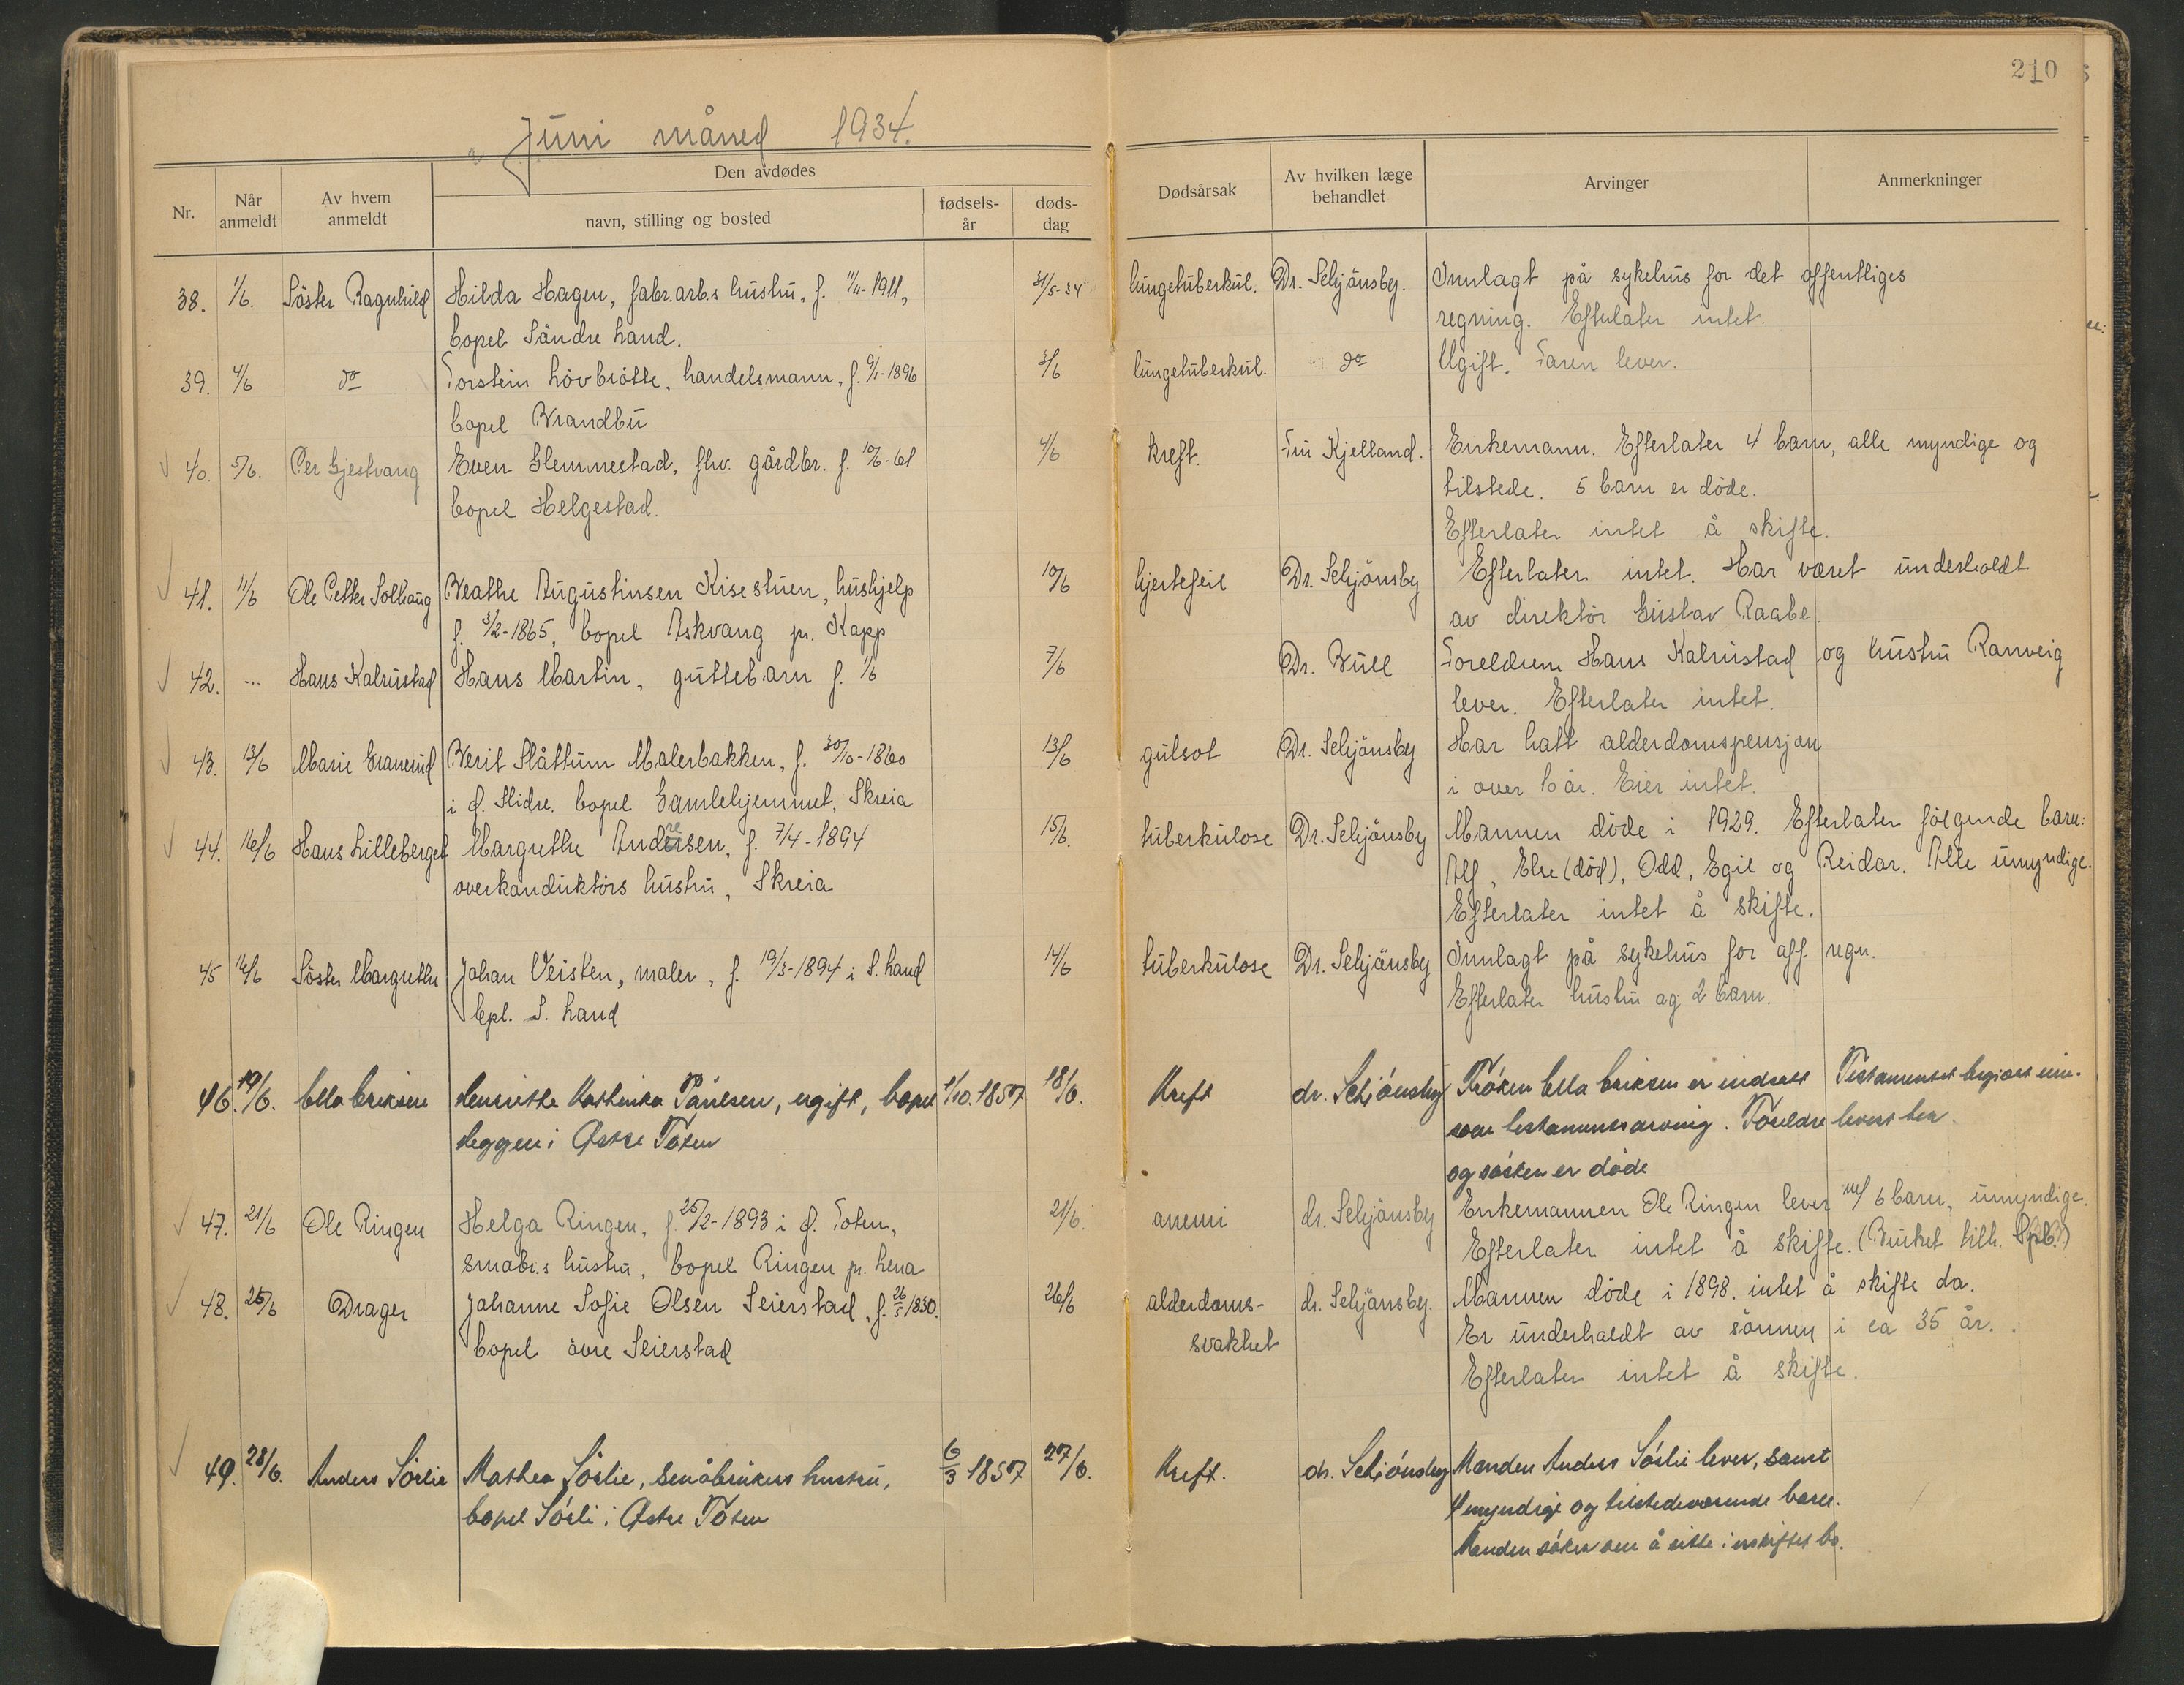 210
Juni måned 1934.
Nr.
Når anmeldt
Av hvem anmeldt
Den avdødes
navn, stilling og bosted
fødsels-år
døds-dag
Dødsårsak
Av hvilken læge behandlet
Arvinger
Anmerkninger
38. 1/6. Søster Ragnhild Hilda Hagen, fabr.arb.s hustru, f. 11/11-1911, 31/5-34 lungetuberkul. Dr. Schjönsby. Innlagt på sykehus for det offentliges
bopel Söndre Land. regning. Efterlater intet.
39. 4/6 do Torstein Lövbrötte, handelsmann, f. 9/1-1896 3/6 lungetuberkul. do Ugift. Faren lever.
bopel Brandbu
40. 5/6. Per Gjestvang Even Glemmestad, fhv. gårdbr. f. 10/6-61 4/6 kreft. Fru Kjelland. Enkemann. Efterlater 4 barn, alle myndige og
bopel Helgestad. tilstede. 5 barn er döde.
Efterlater intet å skifte.
41. 11/6 Ole Petter Solhaug Beathe Augustinsen Kisestuen, hushjelp 10/6 hjertefeil Dr. Schjönsby Efterlater intet. Har været underholdt
f. 3/2-1865, bopel Askvang pr. Kapp av direktör Gustav Raabe.
42. ... Hans Kalrustad Hans Martin, guttebarn f. 1/6 7/6 Dr. Bull Foreldrene Hans Kalrustad og hustru Ranveig
lever. Efterlater intet.
43. 13/6 Marie Granerud Berit Slåttum Malerbakken, f. 30/10-1860 13/6 gulsot Dr. Schjönsby Har hatt alderdomspensjon
i Ø. Slidre. bopel Gamlehjemmet, Skreia i over 10 år. Eier intet.
44. 16/6 Hans Lilleberget Margrethe Andresen, f. 7/4-1894 15/6. tuberkulose Dr. Schjönsby Mannen döde i 1929. Efterlater fölgende barn:
overkonduktörs hustru, Skreia Alf, Else (död), Odd, Egil og Reidar. Alle umyndige.
Efterlater intet å skifte.
45 16/6 Söster Margrethe Johan Veisten, maler, f. 19/3-1894 i S. Land 14/6 tuberkulose Dr. Schjönsby Innlagt på sykehus for off. regn.
bpl. S. Land Efterlater hustru og 2 barn.
46. 19/6. Ella Eriksen Henriette Mathinka Paulsen, ugift, bopel 1/10.1857 18/6. Kreft dr. Schiónsby Fröken Ella Eriksen er indsatt Testamentet
Heggen i Østre Toten som testamentsarving. Foreldre
og sósken er döde
47. 21/6 Ole Ringen Helga Ringen, f. 25/2-1893 i Ø. Toten, 21/6. anemi dr. Schjönsby Enkemannen Ole Ringen lever m/ 6 barn, umyndige.
småbr.s hustru, bopel Ringen pr. Lena Efterlater intet å skifte. (Bruket tilh. Spb.)
48. 26/6 Drager Johanne Sofie Olsen Seierstad, f. 26/5 1830. 26/6 alderdoms- dr. Schjönsby. Mannen döde i 1898. intet å skifte da.
bopel övre Seierstad svakhet Er underholdt av sönnen i ca 35 år.
Efterlater intet å skifte.
49. 28/6. Anders Sörlie Mathea Sörlie, småbrukers hustru, 6/3 1857 27/6. Kreft. dr. Schiónsby Manden Anders Sórlie lever, samt
bopel Sórli i Østre Toten 4 myndige og tilstedeværende barn.
Manden söker om å sitte i uskiftet bo.